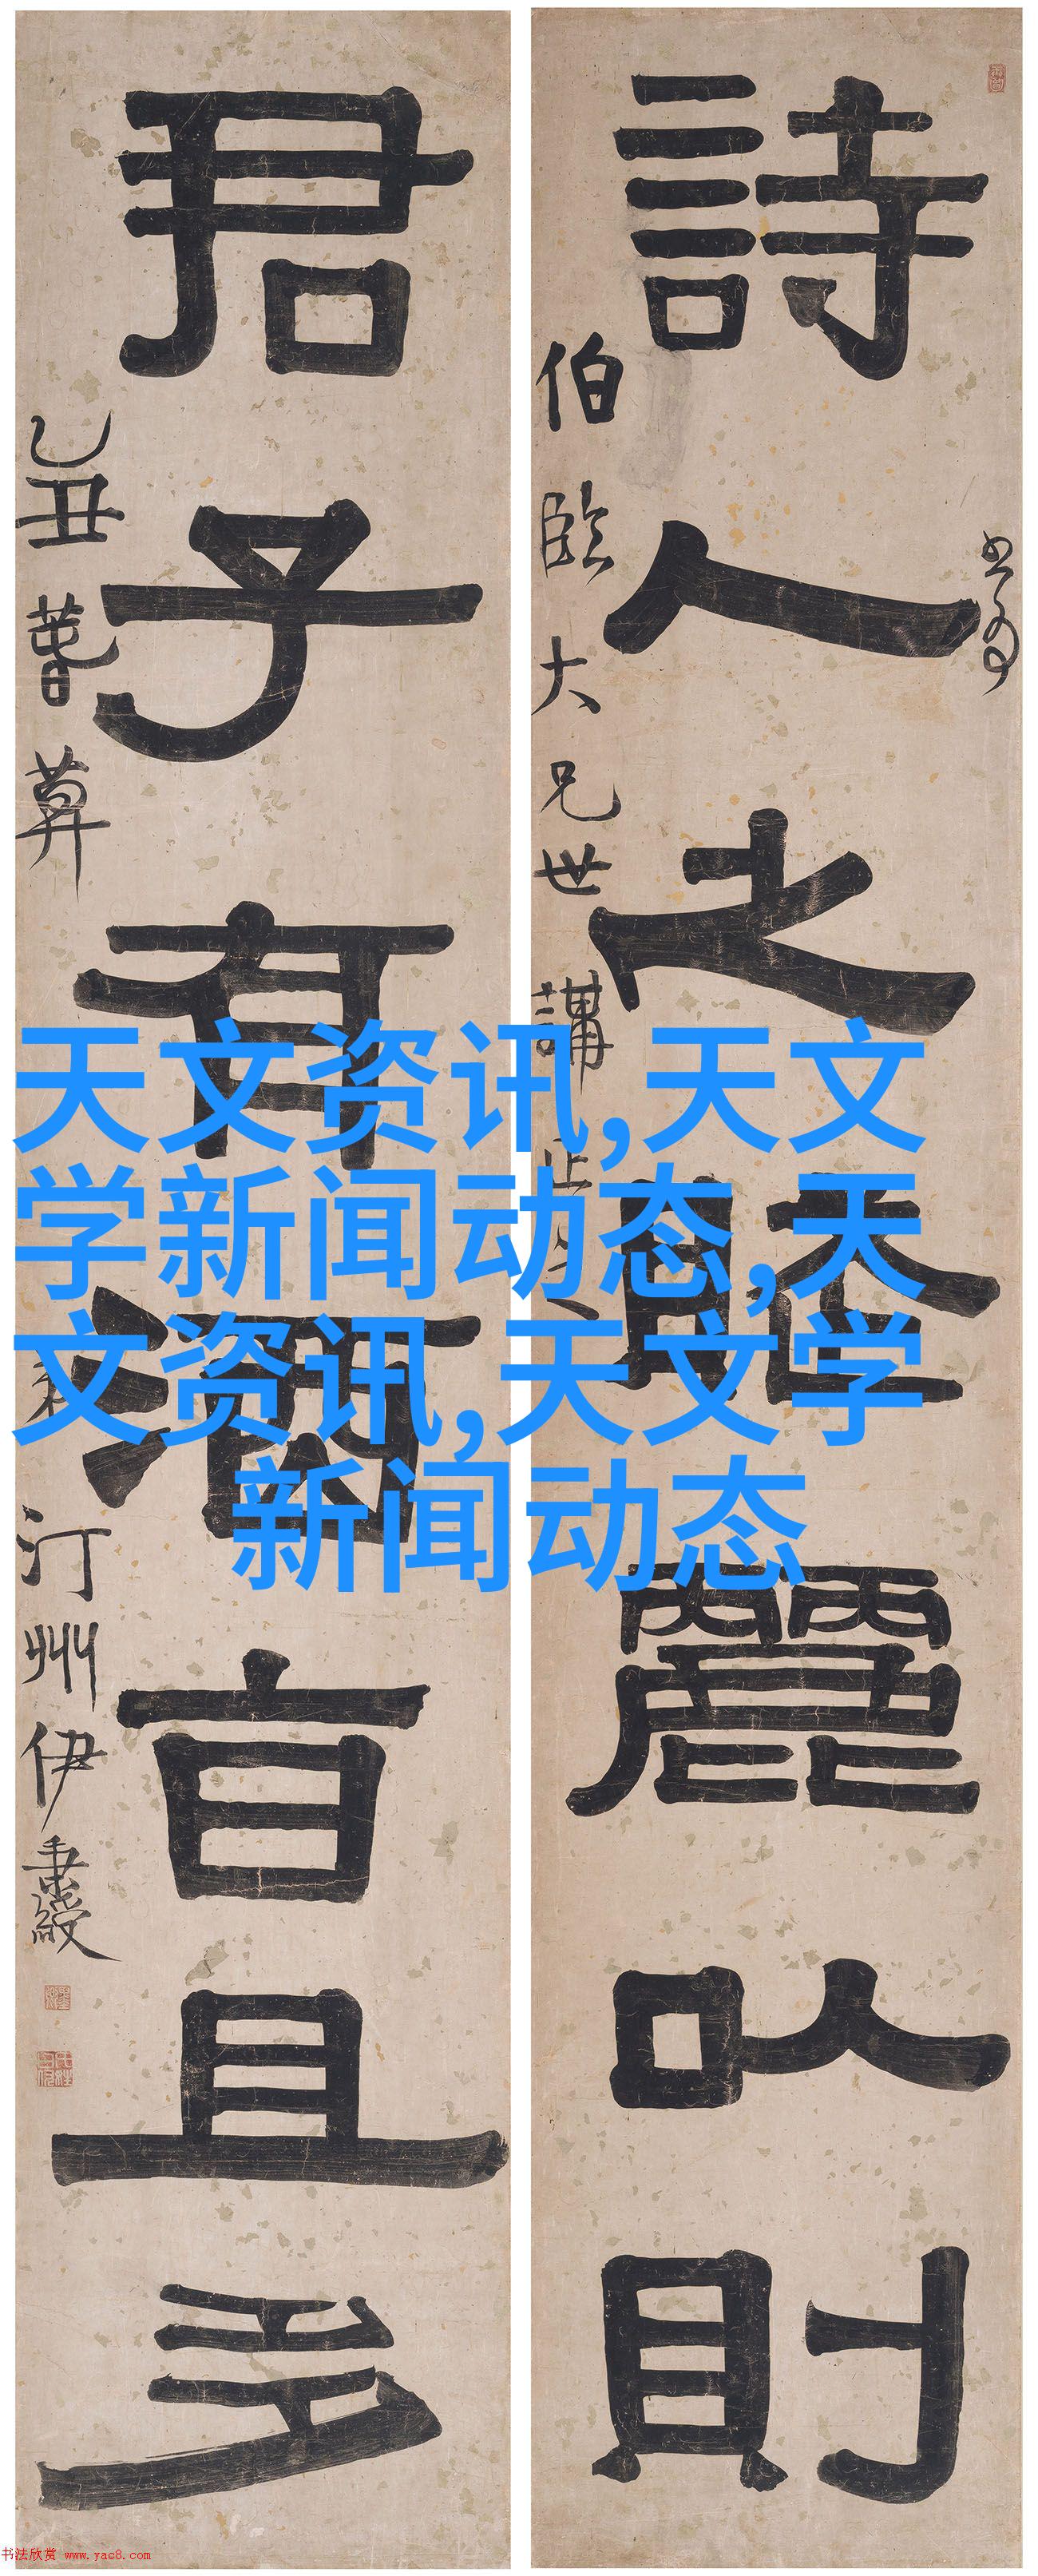 詩人之麗以則
伯臨大兄世講正
君子有酒旨且多
乙丑
汀州伊秉綬
天文资讯,天文
学新闻动态,天
文资讯,天文学
新闻动态
书法欣赏 www.yac8.com